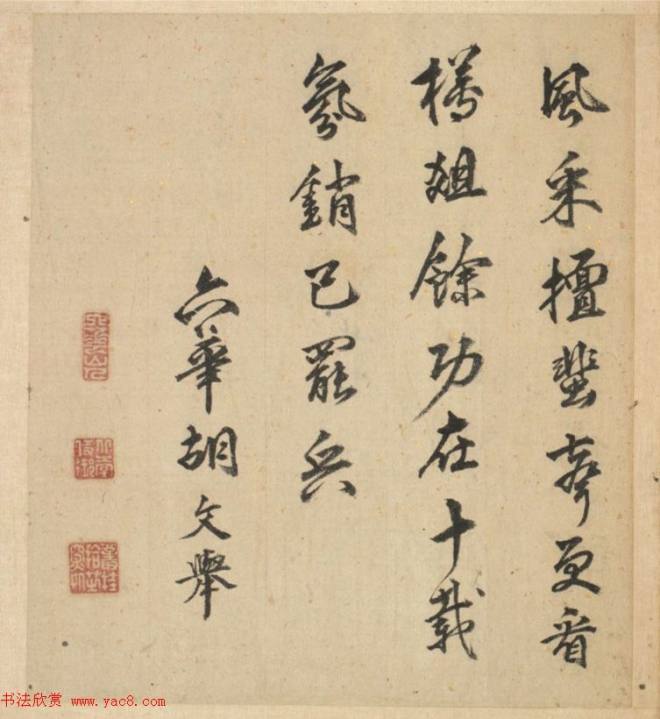 風采擅蜚聲更看
樽俎餘功在十載
氛銷已罷兵
六華胡文舉
书法欣赏 www.yac8.com